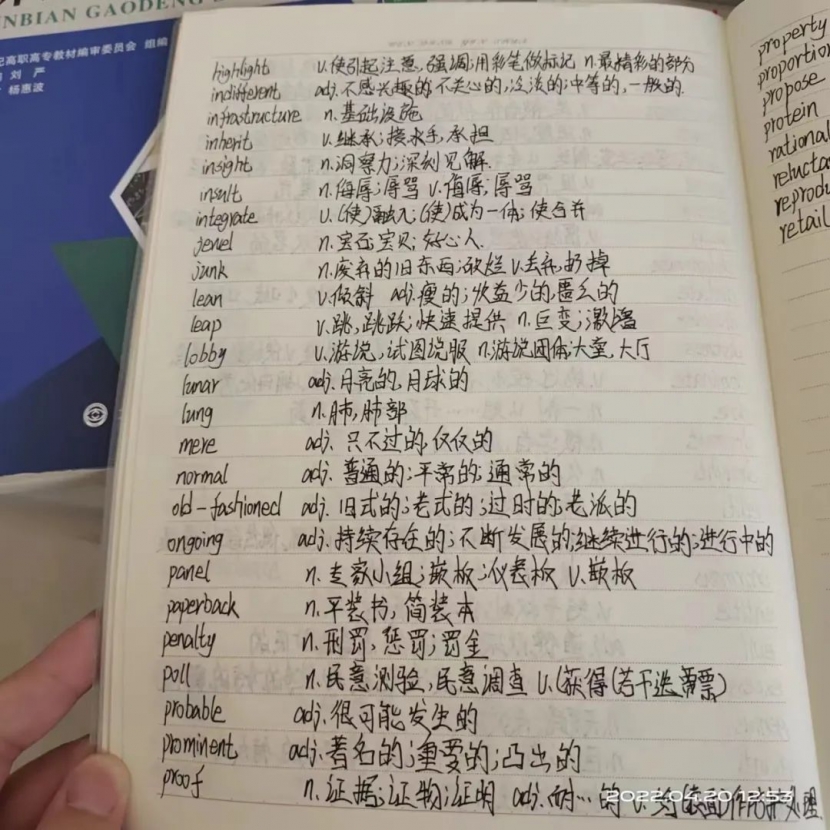 NBIAN GAODENG
高职高专教材编审委员会 组编
刘 严
杨惠波
highlight v.使引起注意,强调;用彩笔做标记 n.最精彩的部分
indifferent adj.不感兴趣的;不关心的;冷淡的;中等的,一般的
infrastructure n.基础设施
inherit v.继承;接水手,承担
insight n.洞察力;深刻见解
insult n.侮辱;辱骂 v.侮辱;辱骂
integrate v.(使)融入;(使)成为一体;使合并
jewel n.宝石;宝贝;好心人
junk n.废弃的旧东西;破烂 v.丢弃,扔掉
lean v.倾斜 adj.瘦的;收益少的,匮乏的
leap v.跳,跳跃;快速提供 n.巨变;激增
lobby v.游说,试图说服 n.游说团体;大堂,大厅
lunar adj.月亮的,月球的
lung n.肺,肺部
mere adj.只不过的,仅仅的
normal adj.普通的;平常的;通常的
old-fashioned adj.旧式的;老式的;过时的;老派的
ongoing adj.持续存在的;不断发展的;继续进行的;进行中的
panel n.专家小组;嵌板;仪表板 v.嵌板
paperback n.平装书,简装本
penalty n.刑罚,惩罚;罚金
poll n.民意测验,民意调查 v.(获得(若干选票)
probable adj.很可能发生的
prominent adj.著名的;重要的;凸出的
proof n.证据;证物;证明 adj.耐…的 v.
2022.04.20 12:53
property
proportion
propose
protein
rational
relucta
reprodu
retail